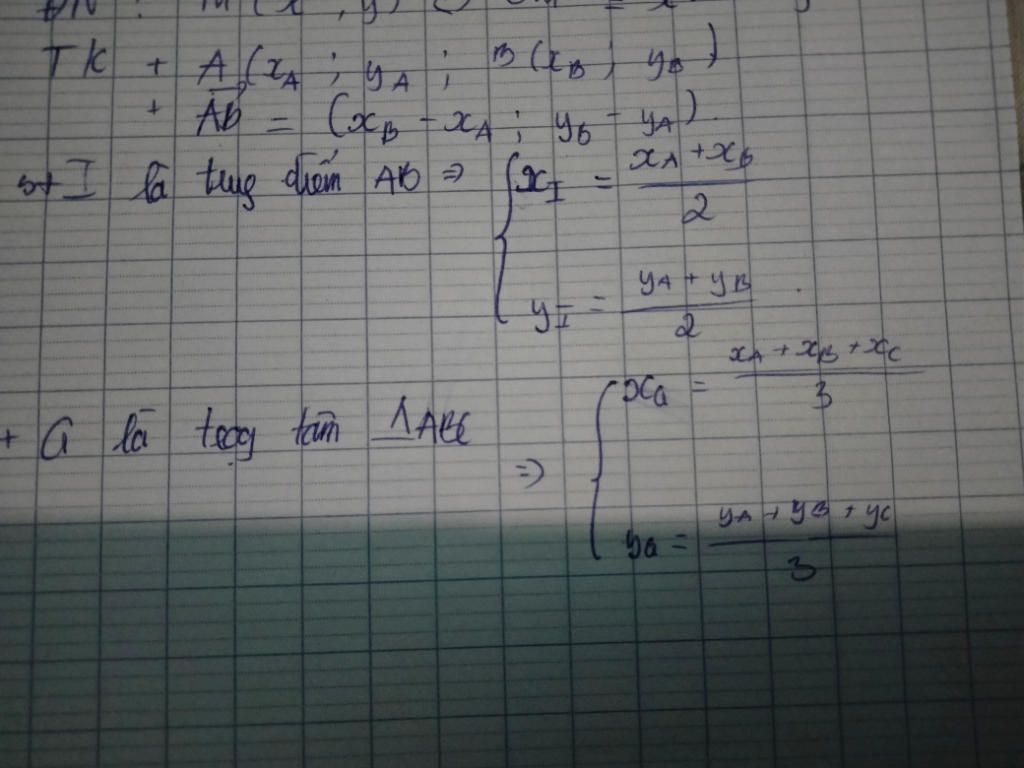 ĐN : M (x , y)
TK + A (xA ; yA ; B (xB ; yB)
+ AB = (xB - xA ; yB - yA).
+ I là trung điểm AB => { xI = (xA + xB) / 2
yI = (yA + yB) / 2
+ G là trọng tâm △ABC => { xG = (xA + xB + xC) / 3
yG = (yA + yB + yC) / 3